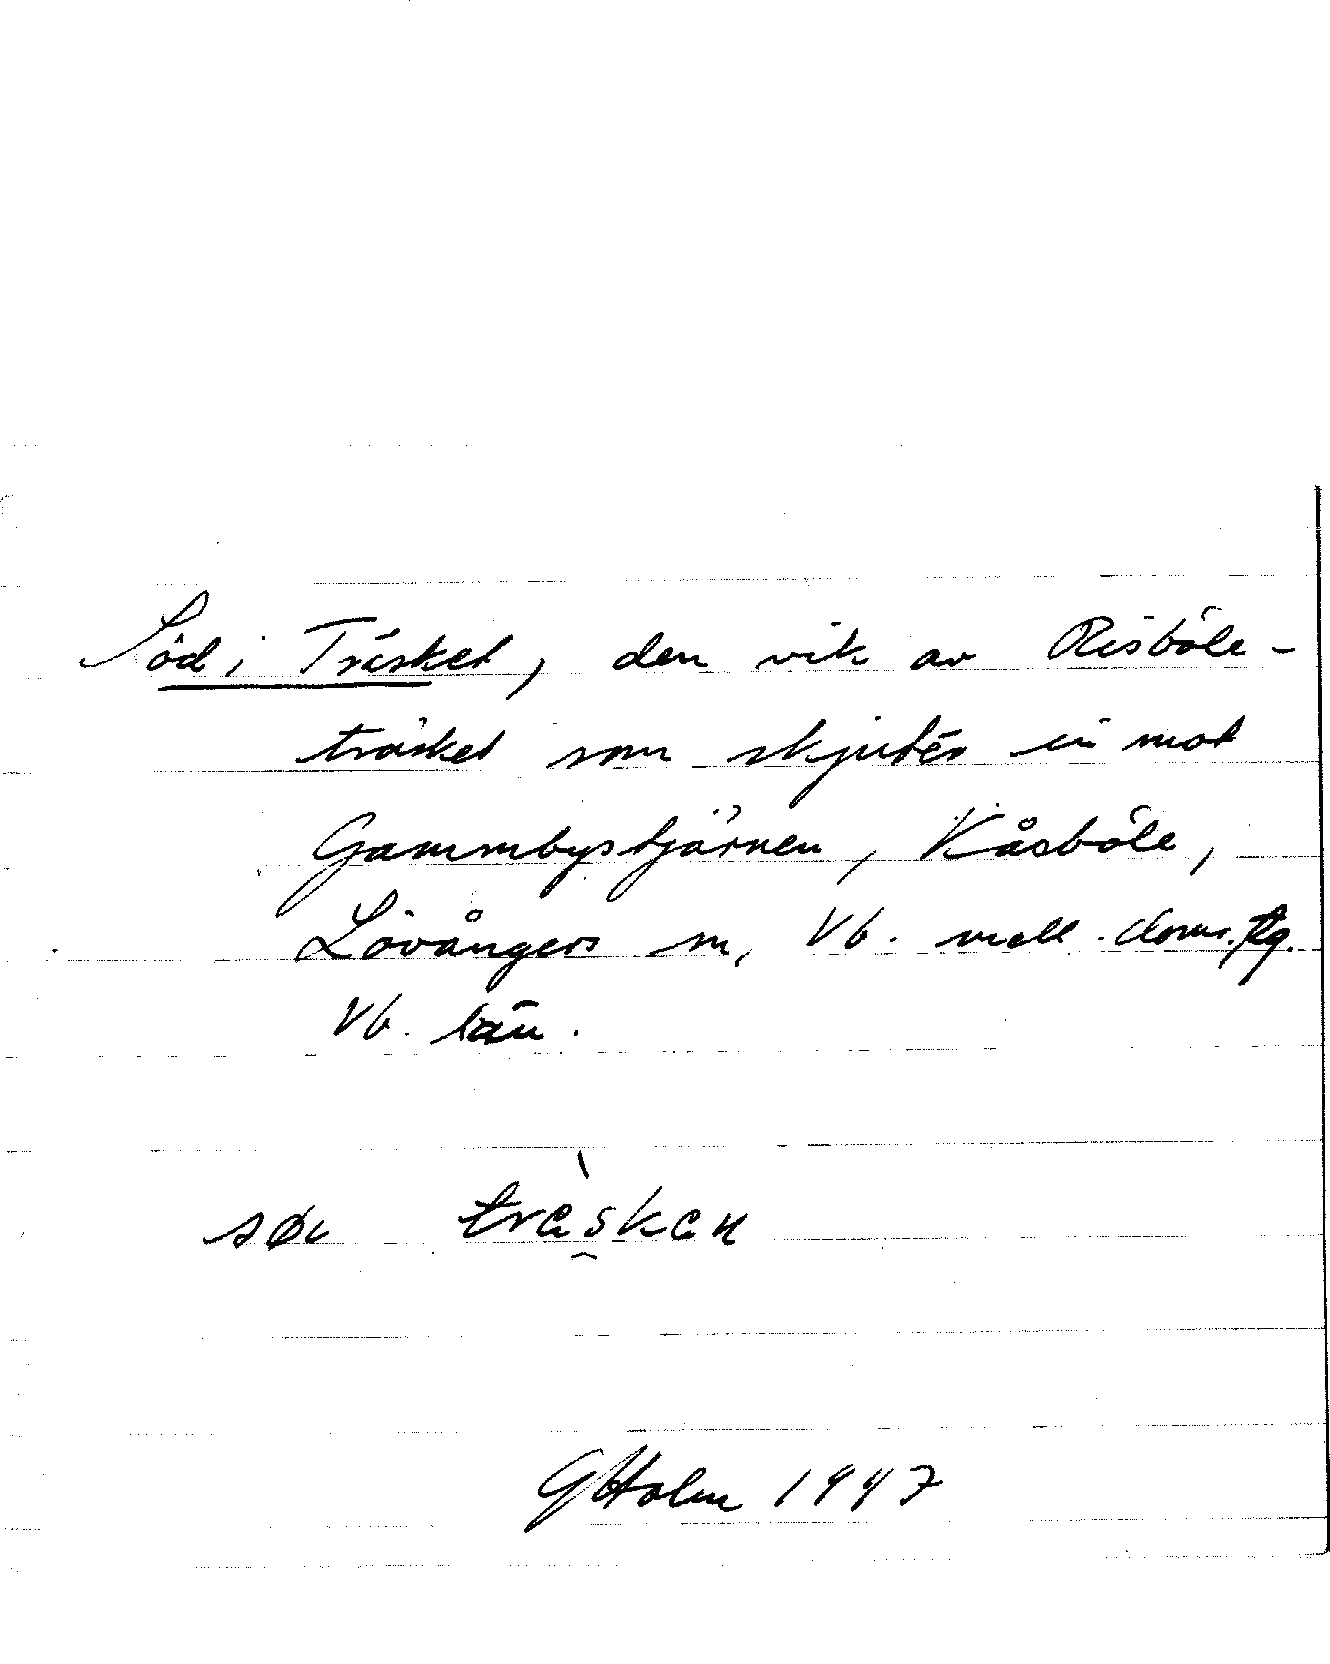 Söd i Träsket, den vik av Risböle-
träsket som skjuter in mot
Gammbystjärnen, Kåsböle,
Lövångers sn, Vb. mell. doms. tg.
Vb. län.
träsken
GHolm 1947